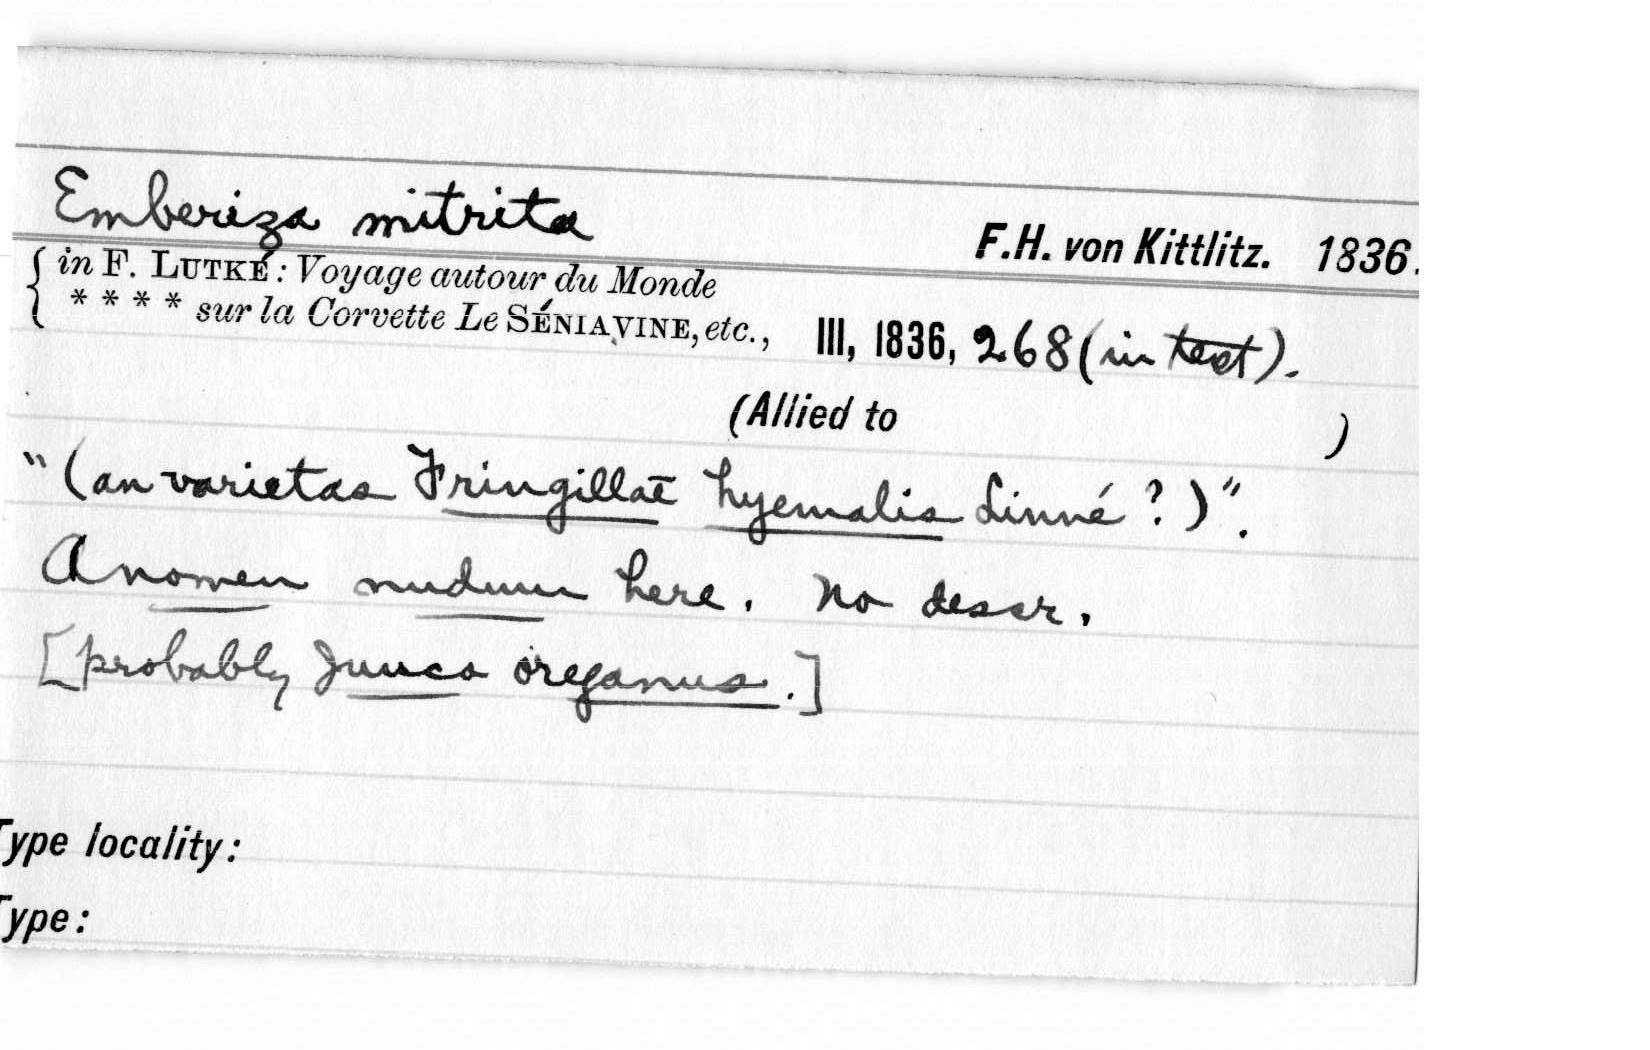 Emberiza mitrita
F.H. von Kittlitz. 1836.
{ in F. LUTKÉ: Voyage autour du Monde
* * * * sur la Corvette Le SÉNIAVINE, etc., III, 1836, 268 (in text).
(Allied to )
"(an varietas Fringillae hyemalis Linné ?)".
A nomen nudum here. No descr.
[probably Junco oreganus.]
Type locality:
Type: